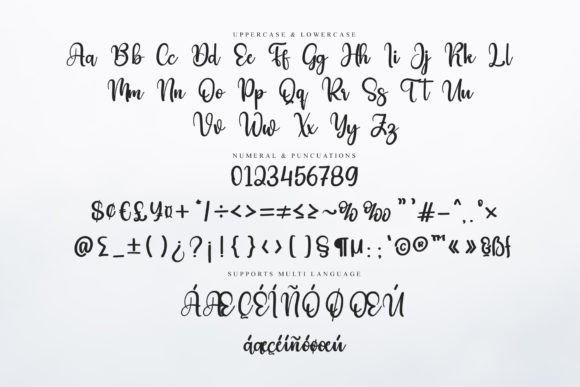 UPPERCASE & LOWERCASE
Aa Bb Cc Dd Ee Ff Gg Hh Ii Jj Kk Ll
Mm Nn Oo Pp Qq Rr Ss Tt Uu
Vv Ww Xx Yy Zz
NUMERAL & PUNCUATIONS
0123456789
$¢€£¥¤+*/÷<>=≠≤≥~%‰"'#-^,.°×
@Σ_±()¿?¡!{}‹›[]§¶µ:;'©®™«»§ßƒ
SUPPORTS MULTI LANGUAGE
ÁÆÇÉÍÑÓØŒÚ
áæçéíñóøœú